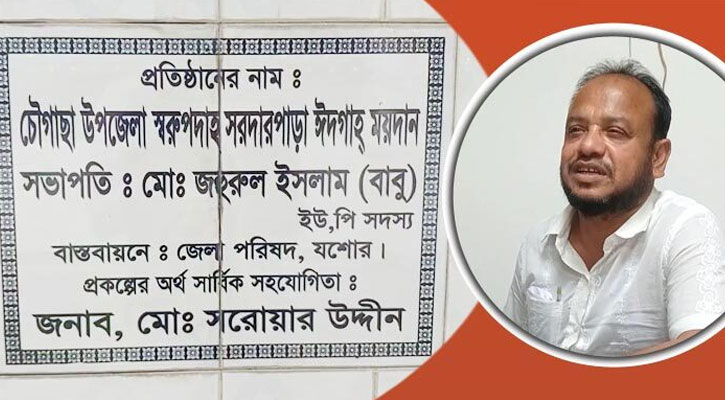 প্রতিষ্ঠানের নাম :
চৌগাছা উপজেলা স্বরুপদাহ সরদারপাড়া ঈদগাহ্ ময়দান
সভাপতি : মোঃ জহুরুল ইসলাম (বাবু)
ইউ,পি সদস্য
বাস্তবায়নে : জেলা পরিষদ, যশোর।
প্রকল্পের অর্থ সার্বিক সহযোগিতা :
জনাব, মোঃ সরোয়ার উদ্দীন